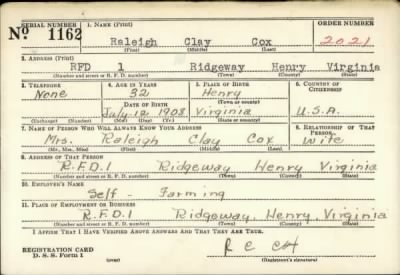 SERIAL NUMBER 1. NAME (Print) ORDER NUMBER
No 1162 Raleigh Clay Cox 2021
(First) (Middle) (Last)
2. ADDRESS (Print)
RFD 1 Ridgeway Henry Virginia
(Number and street or R. F. D. number) (Town) (County) (State)
3. TELEPHONE 4. AGE IN YEARS 5. PLACE OF BIRTH 6. COUNTRY OF CITIZENSHIP
None 32 Henry
(Town or county)
DATE OF BIRTH
July 12 1908 Virginia U.S.A.
(Exchange) (Number) (Mo.) (Day) (Yr.) (State or country)
7. NAME OF PERSON WHO WILL ALWAYS KNOW YOUR ADDRESS 8. RELATIONSHIP OF THAT PERSON
Mrs. Raleigh Clay Cox Wife
(Mr., Mrs., Miss) (First) (Middle) (Last)
9. ADDRESS OF THAT PERSON
R.F.D.1 Ridgeway Henry Virginia
(Number and street or R. F. D. number) (Town) (County) (State)
10. EMPLOYER'S NAME
Self - Farming
11. PLACE OF EMPLOYMENT OR BUSINESS
R.F.D.1 Ridgeway, Henry, Virginia
(Number and street or R. F. D. number) (Town) (County) (State)
I AFFIRM THAT I HAVE VERIFIED ABOVE ANSWERS AND THAT THEY ARE TRUE.
REGISTRATION CARD
D. S. S. Form 1
(over) (Registrant's signature)